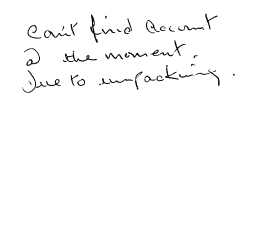 Can't find account
@ the moment.
Due to unpacking.